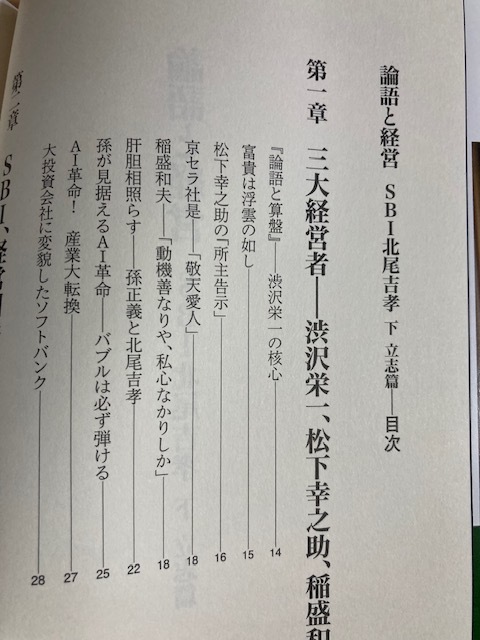 論語と経営　SBI北尾吉孝　下　立志篇――目次
第一章　三大経営者――渋沢栄一、松下幸之助、稲盛和
『論語と算盤』――渋沢栄一の核心 14
富貴は浮雲の如し 15
松下幸之助の「所主告示」 16
京セラ社是――「敬天愛人」 18
稲盛和夫――「動機善なりや、私心なかりしか」 18
肝胆相照らす――孫正義と北尾吉孝 22
孫が見据えるAI革命――バブルは必ず弾ける 25
AI革命！　産業大転換 27
大投資会社に変貌したソフトバンク 28
第二章　SBI、経営